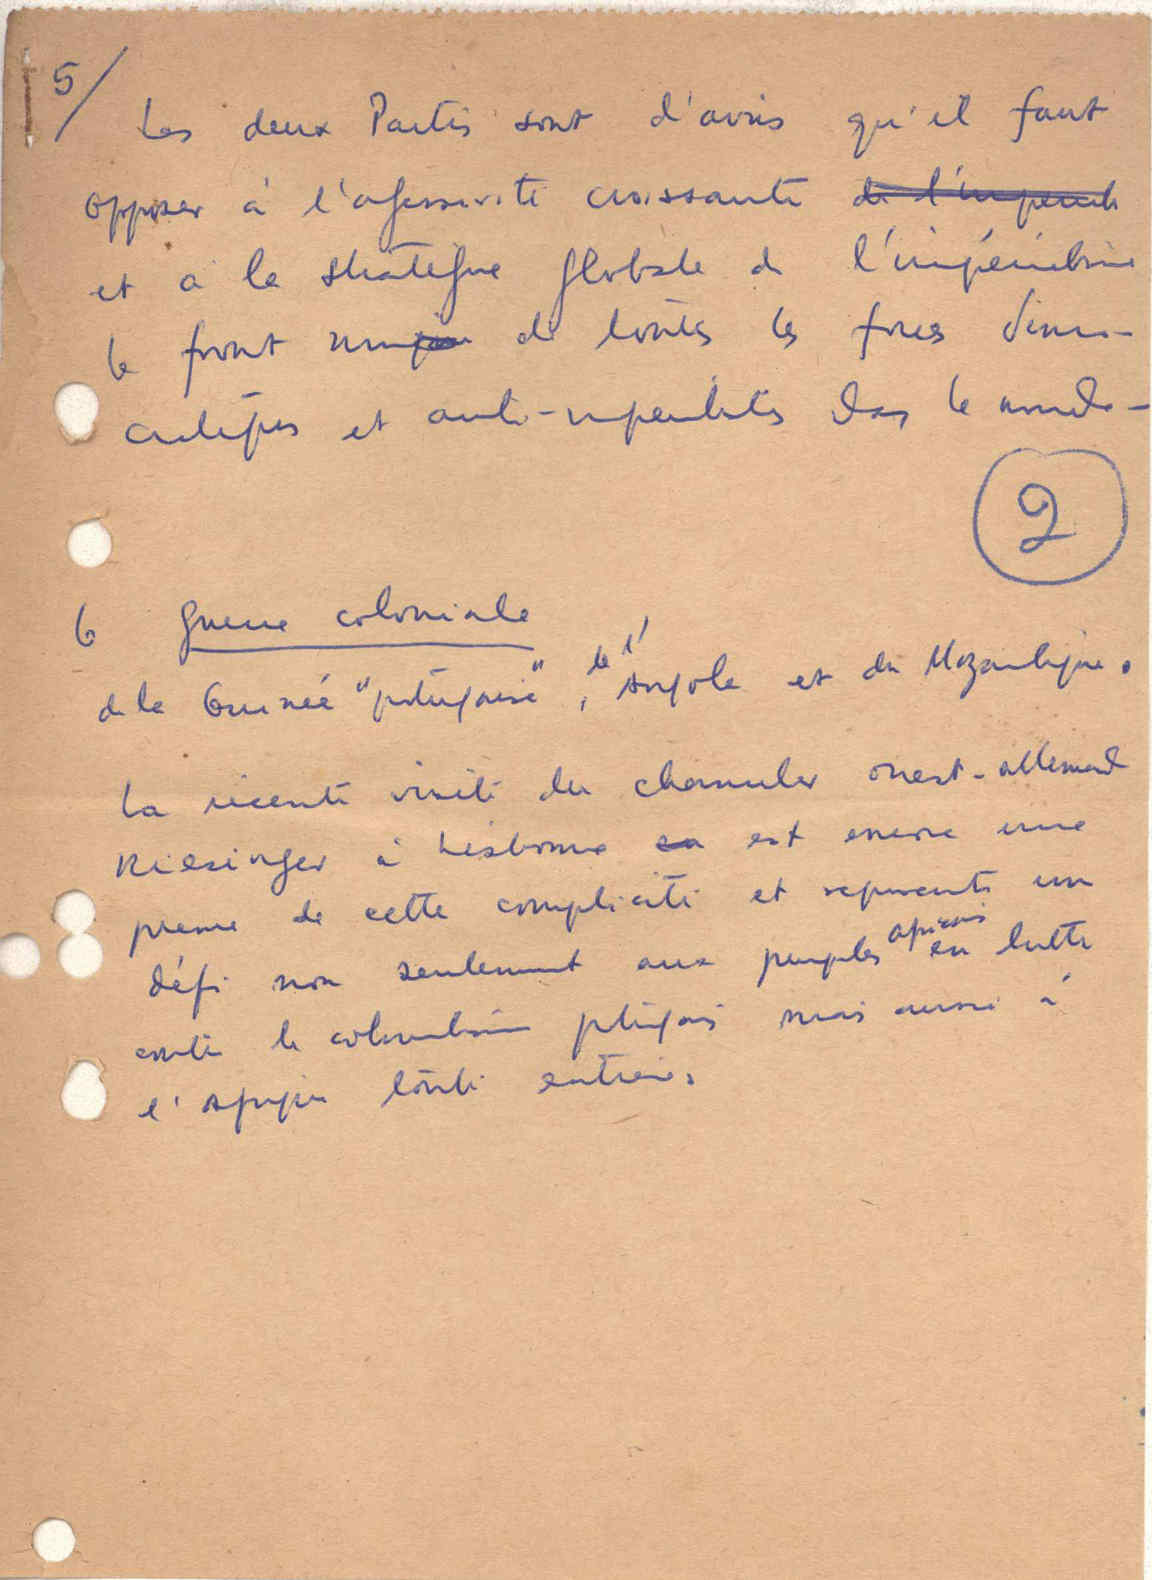 5/ Les deux Partis sont d'avis qu'il faut
opposer à l'agressivité croissante de l'imperial
et à la stratégie globale de l'impérialisme
le front de toutes les forces démo-
cratiques et anti-impérialistes dans le monde-
2
6 Guerre coloniale
de la Guinée "portugaise", de l'Angola et du Mozambique.
La récente visite du chancelier ouest-allemand
Kiesinger à Lisbonne en est encore une
preuve de cette complicité et représente un
défi non seulement aux peuples africains en lutte
contre le colonialisme portugais mais aussi à
l'Afrique toute entière.